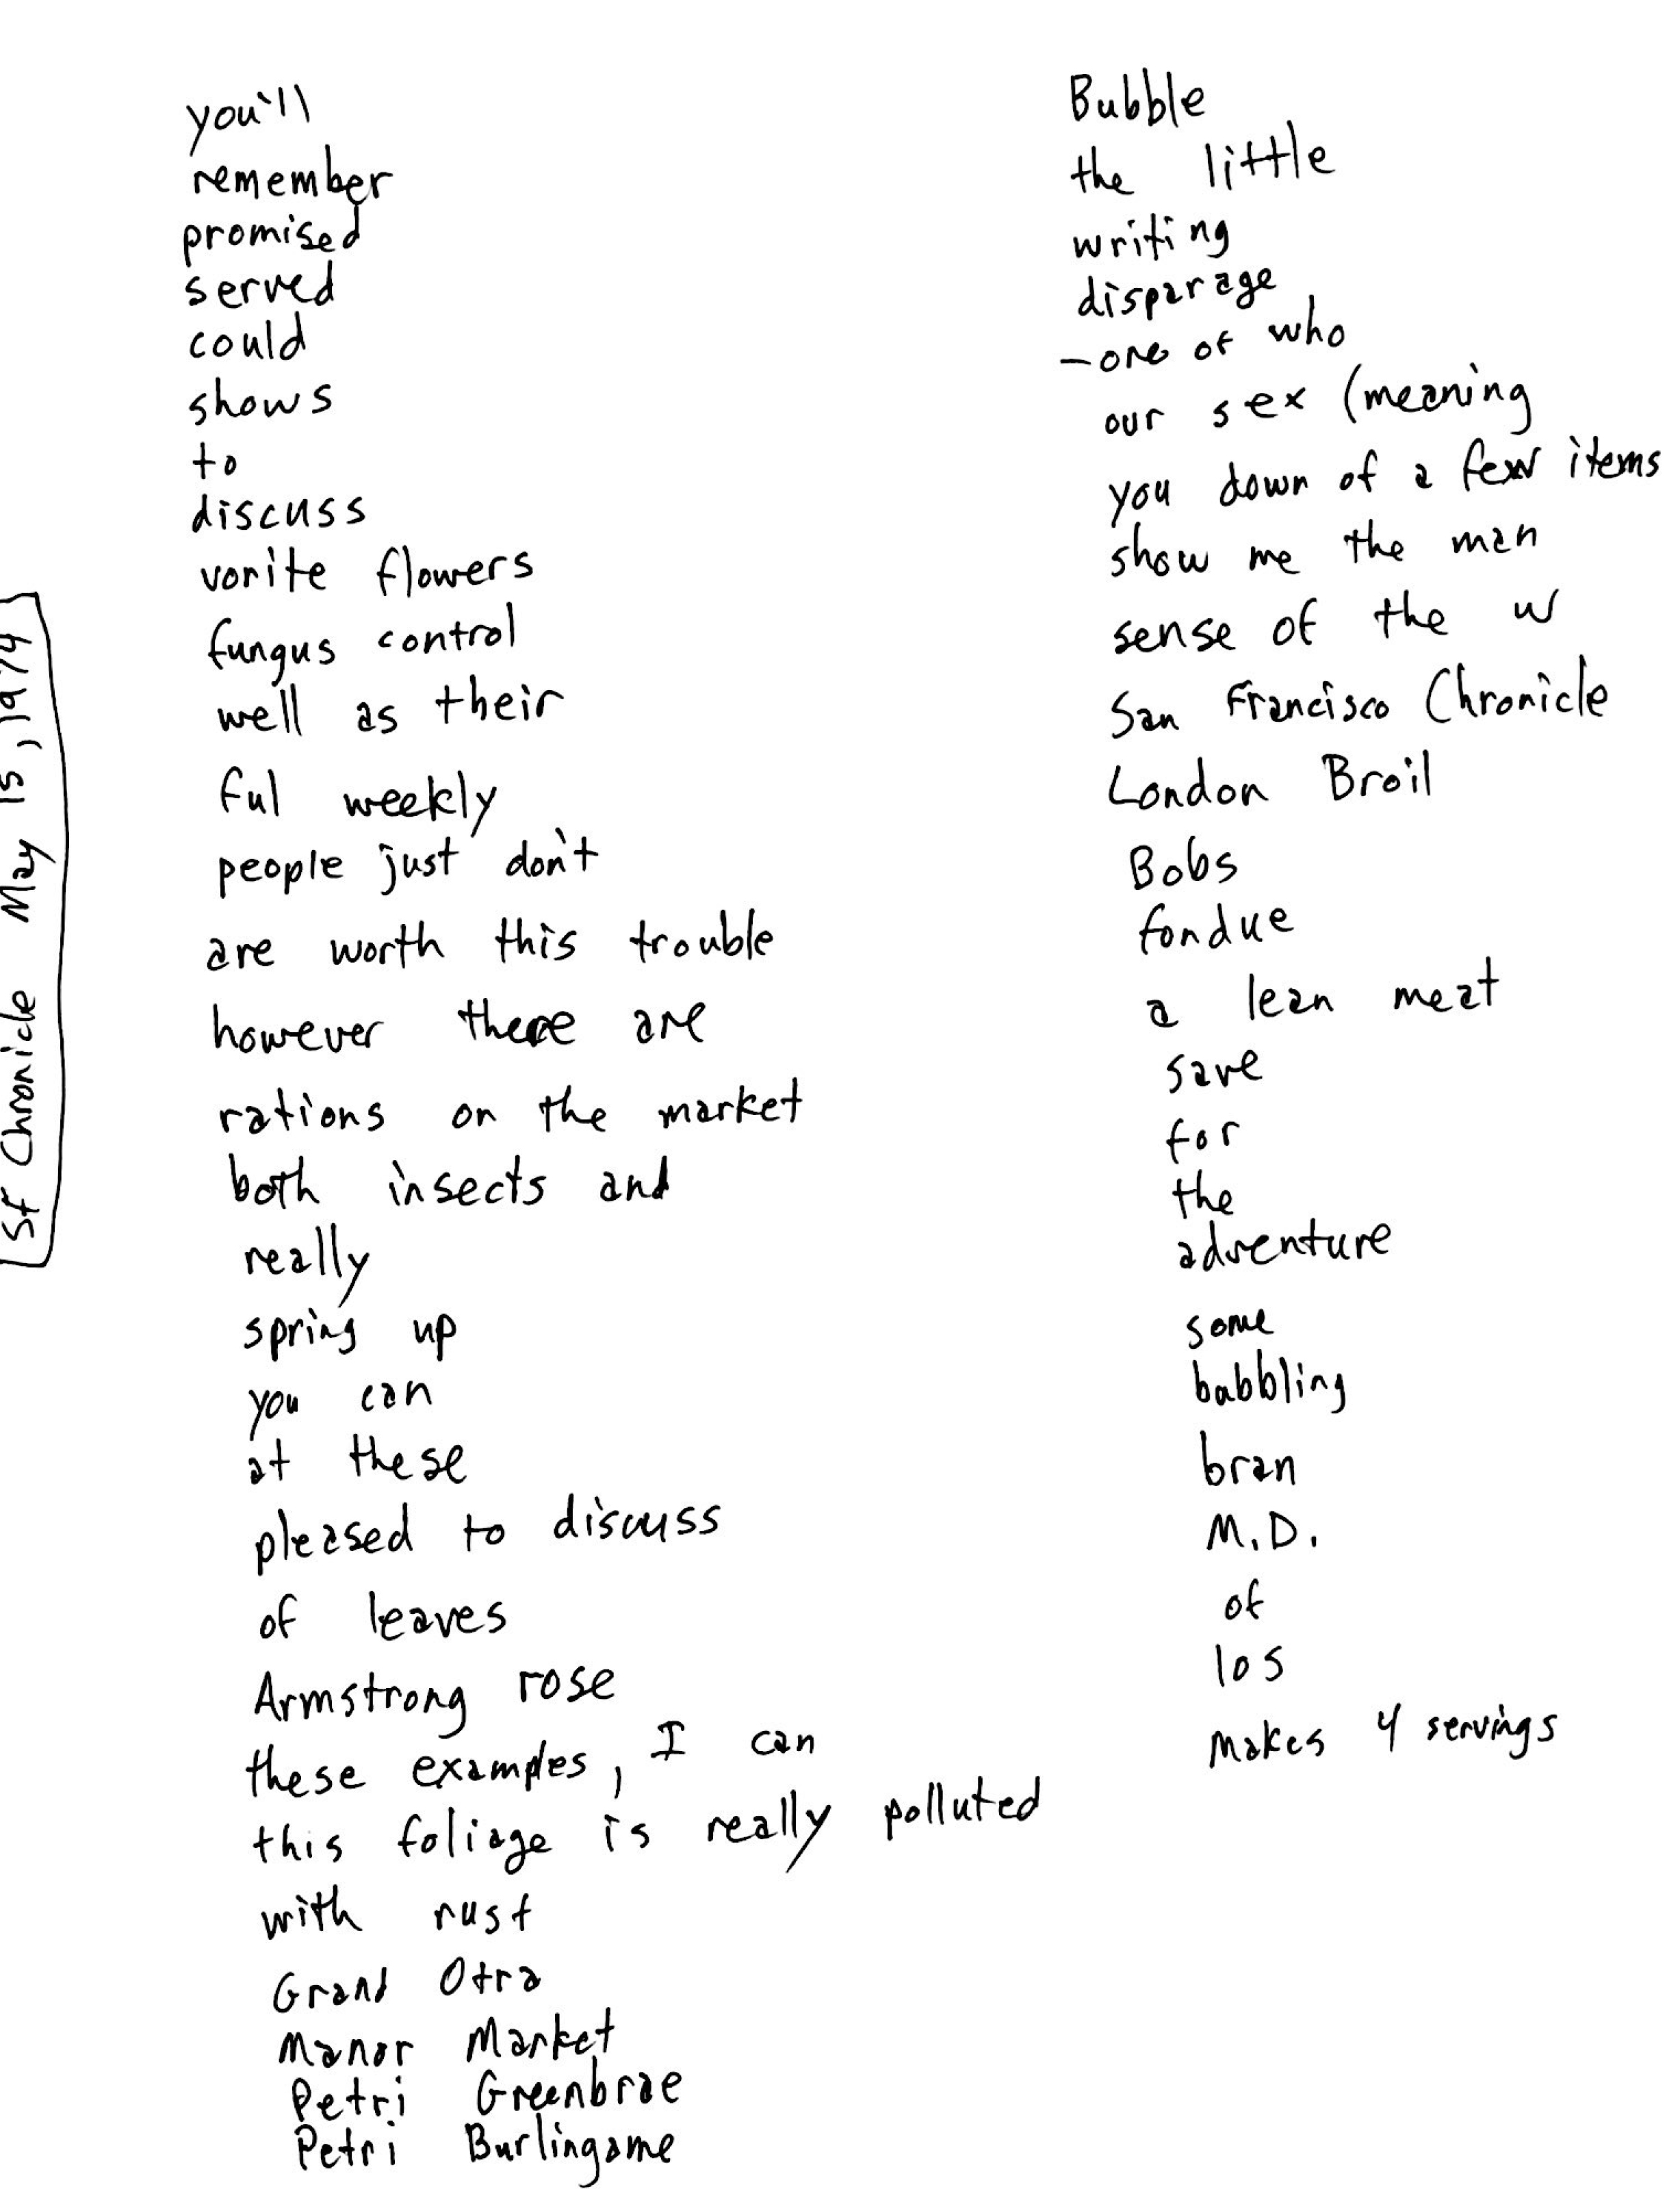 you'll
remember
promised
served
could
shows
to
discuss
vorite flowers
fungus control
well as their
ful weekly
people just don't
are worth this trouble
however there are
rations on the market
both insects and
really
spring up
you can
at these
pleased to discuss
of leaves
Armstrong rose
these examples, I can
this foliage is really polluted
with rust
Grand Otra
Manor Market
Petri Greenbrae
Petri Burlingame
Bubble
the little
writing
disparage
-one of who
our sex (meaning
you down of a few items
show me the man
sense of the w
San Francisco Chronicle
London Broil
Bobs
fondue
a lean meat
save
for
the
adventure
some
babbling
bran
M.D.
of
los
Makes 4 servings
SF Chronicle May 15, 1974